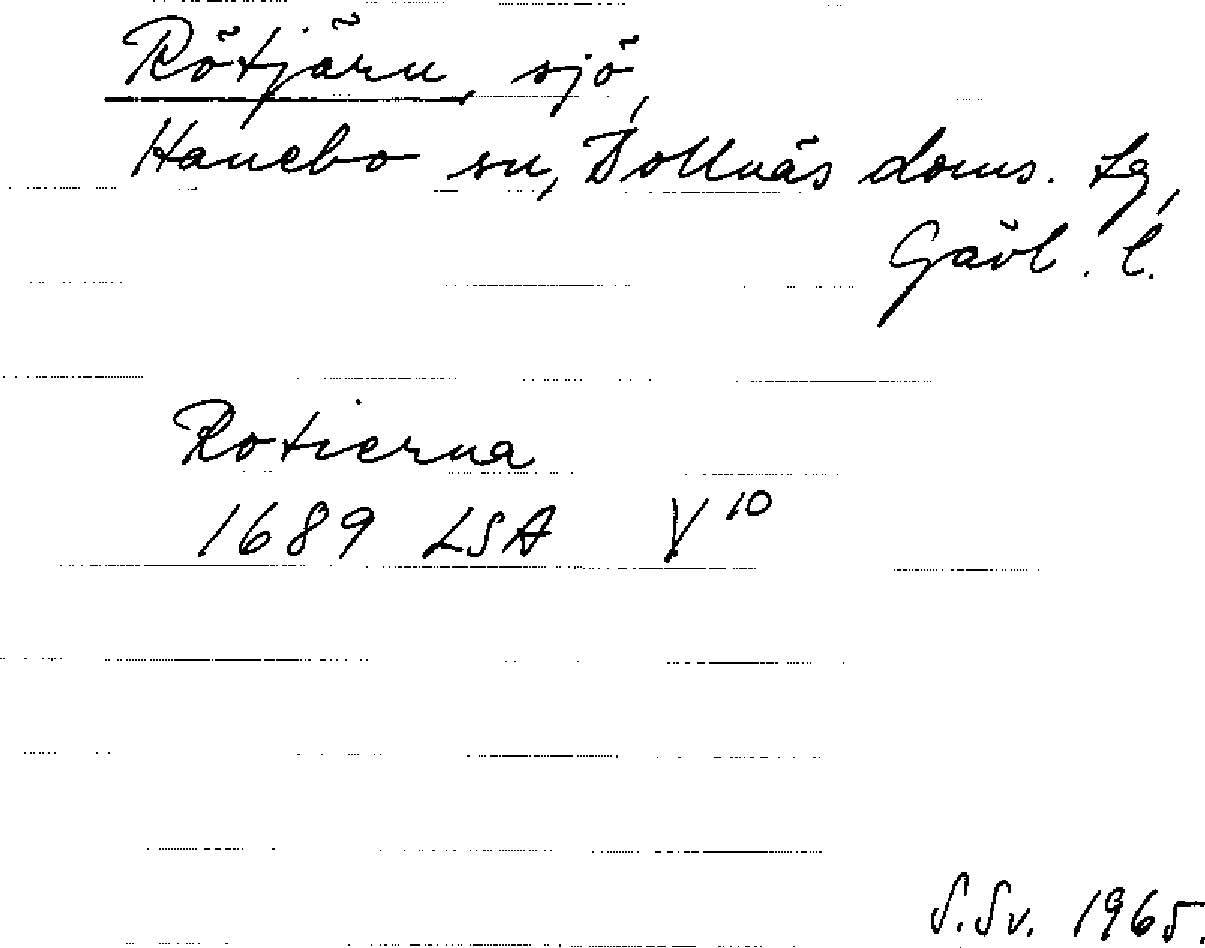 Rötjärn, sjö,
Hanebo sn, Bollnäs doms. tg,
Gävl. l.
Rotierna
1689 LSA V¹⁰
S.Sv. 1965.